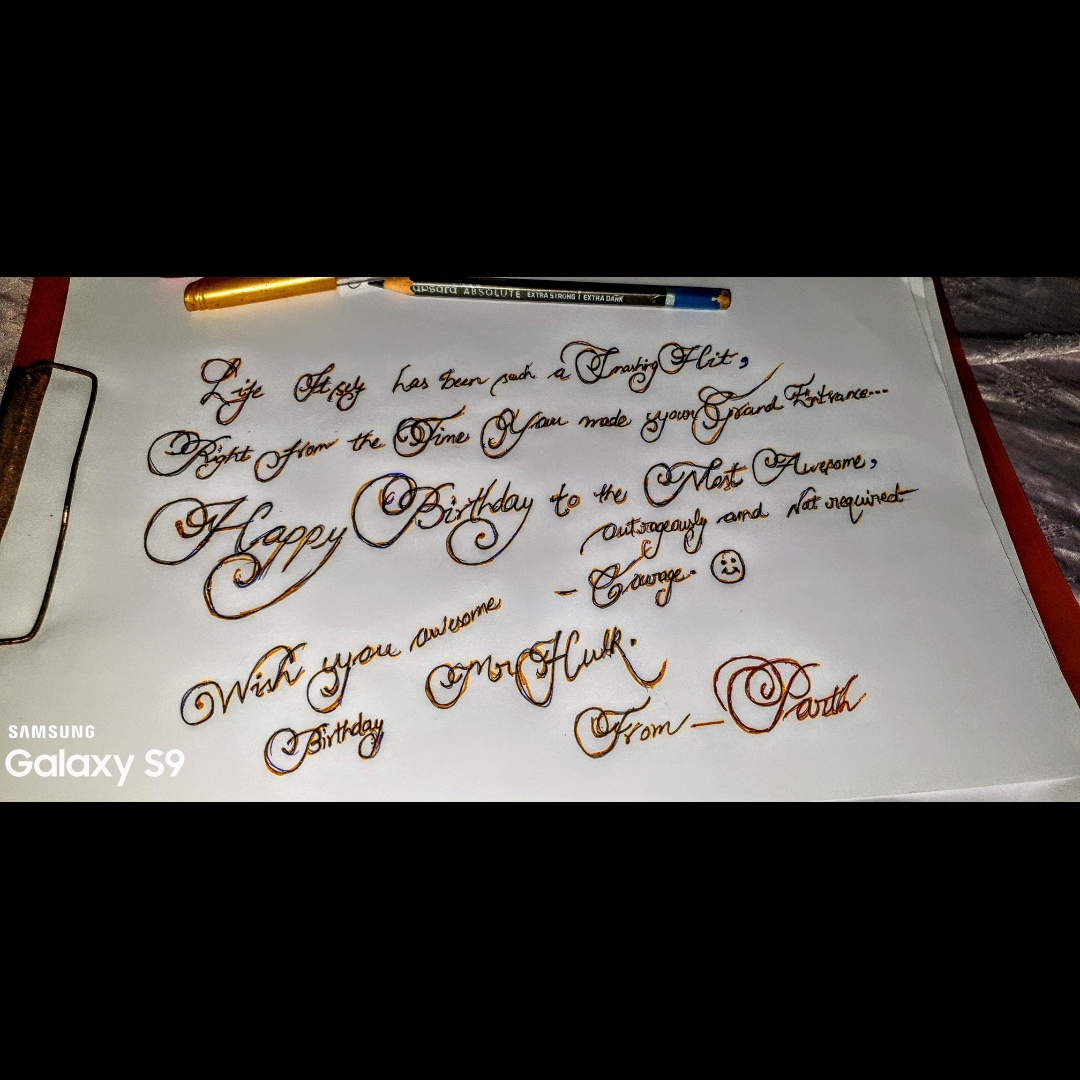 apsara ABSOLUTE EXTRA STRONG | EXTRA DARK
Life Itself has been such a Smashing Hit,
Right from the Time You made your Grand Entrance...
Happy Birthday to the Most Awesome,
outrageously and Not required
- Courage. 
Wish you awesome
Birthday
Mr Hulk.
From - Parth
SAMSUNG
Galaxy S9